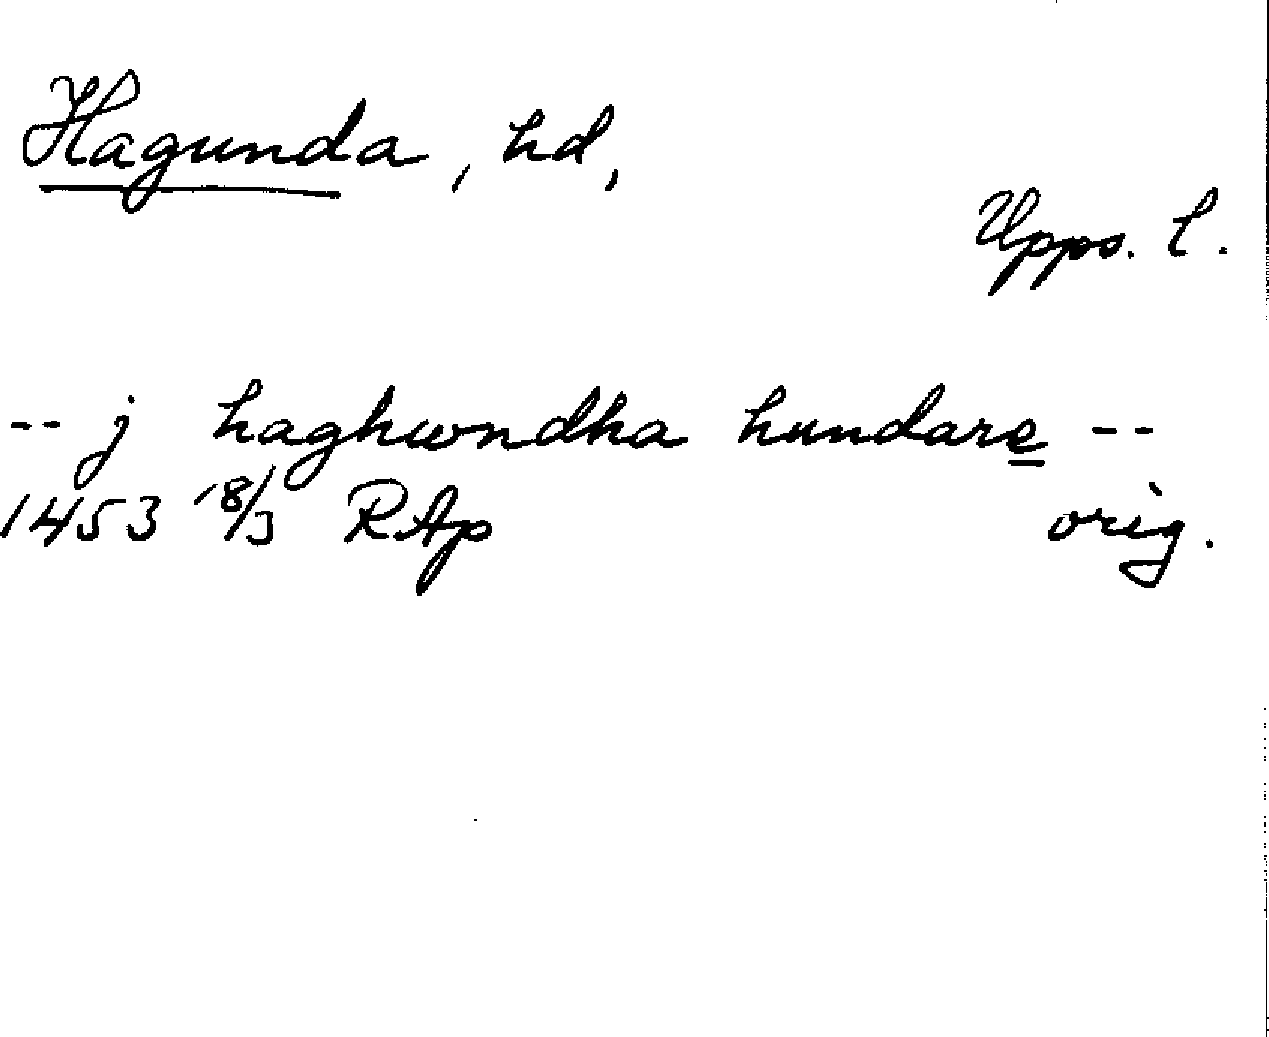 Hagunda, hd,
Upps. l.
-- j haghwndha hundare --
1453 18/3 RAp orig.